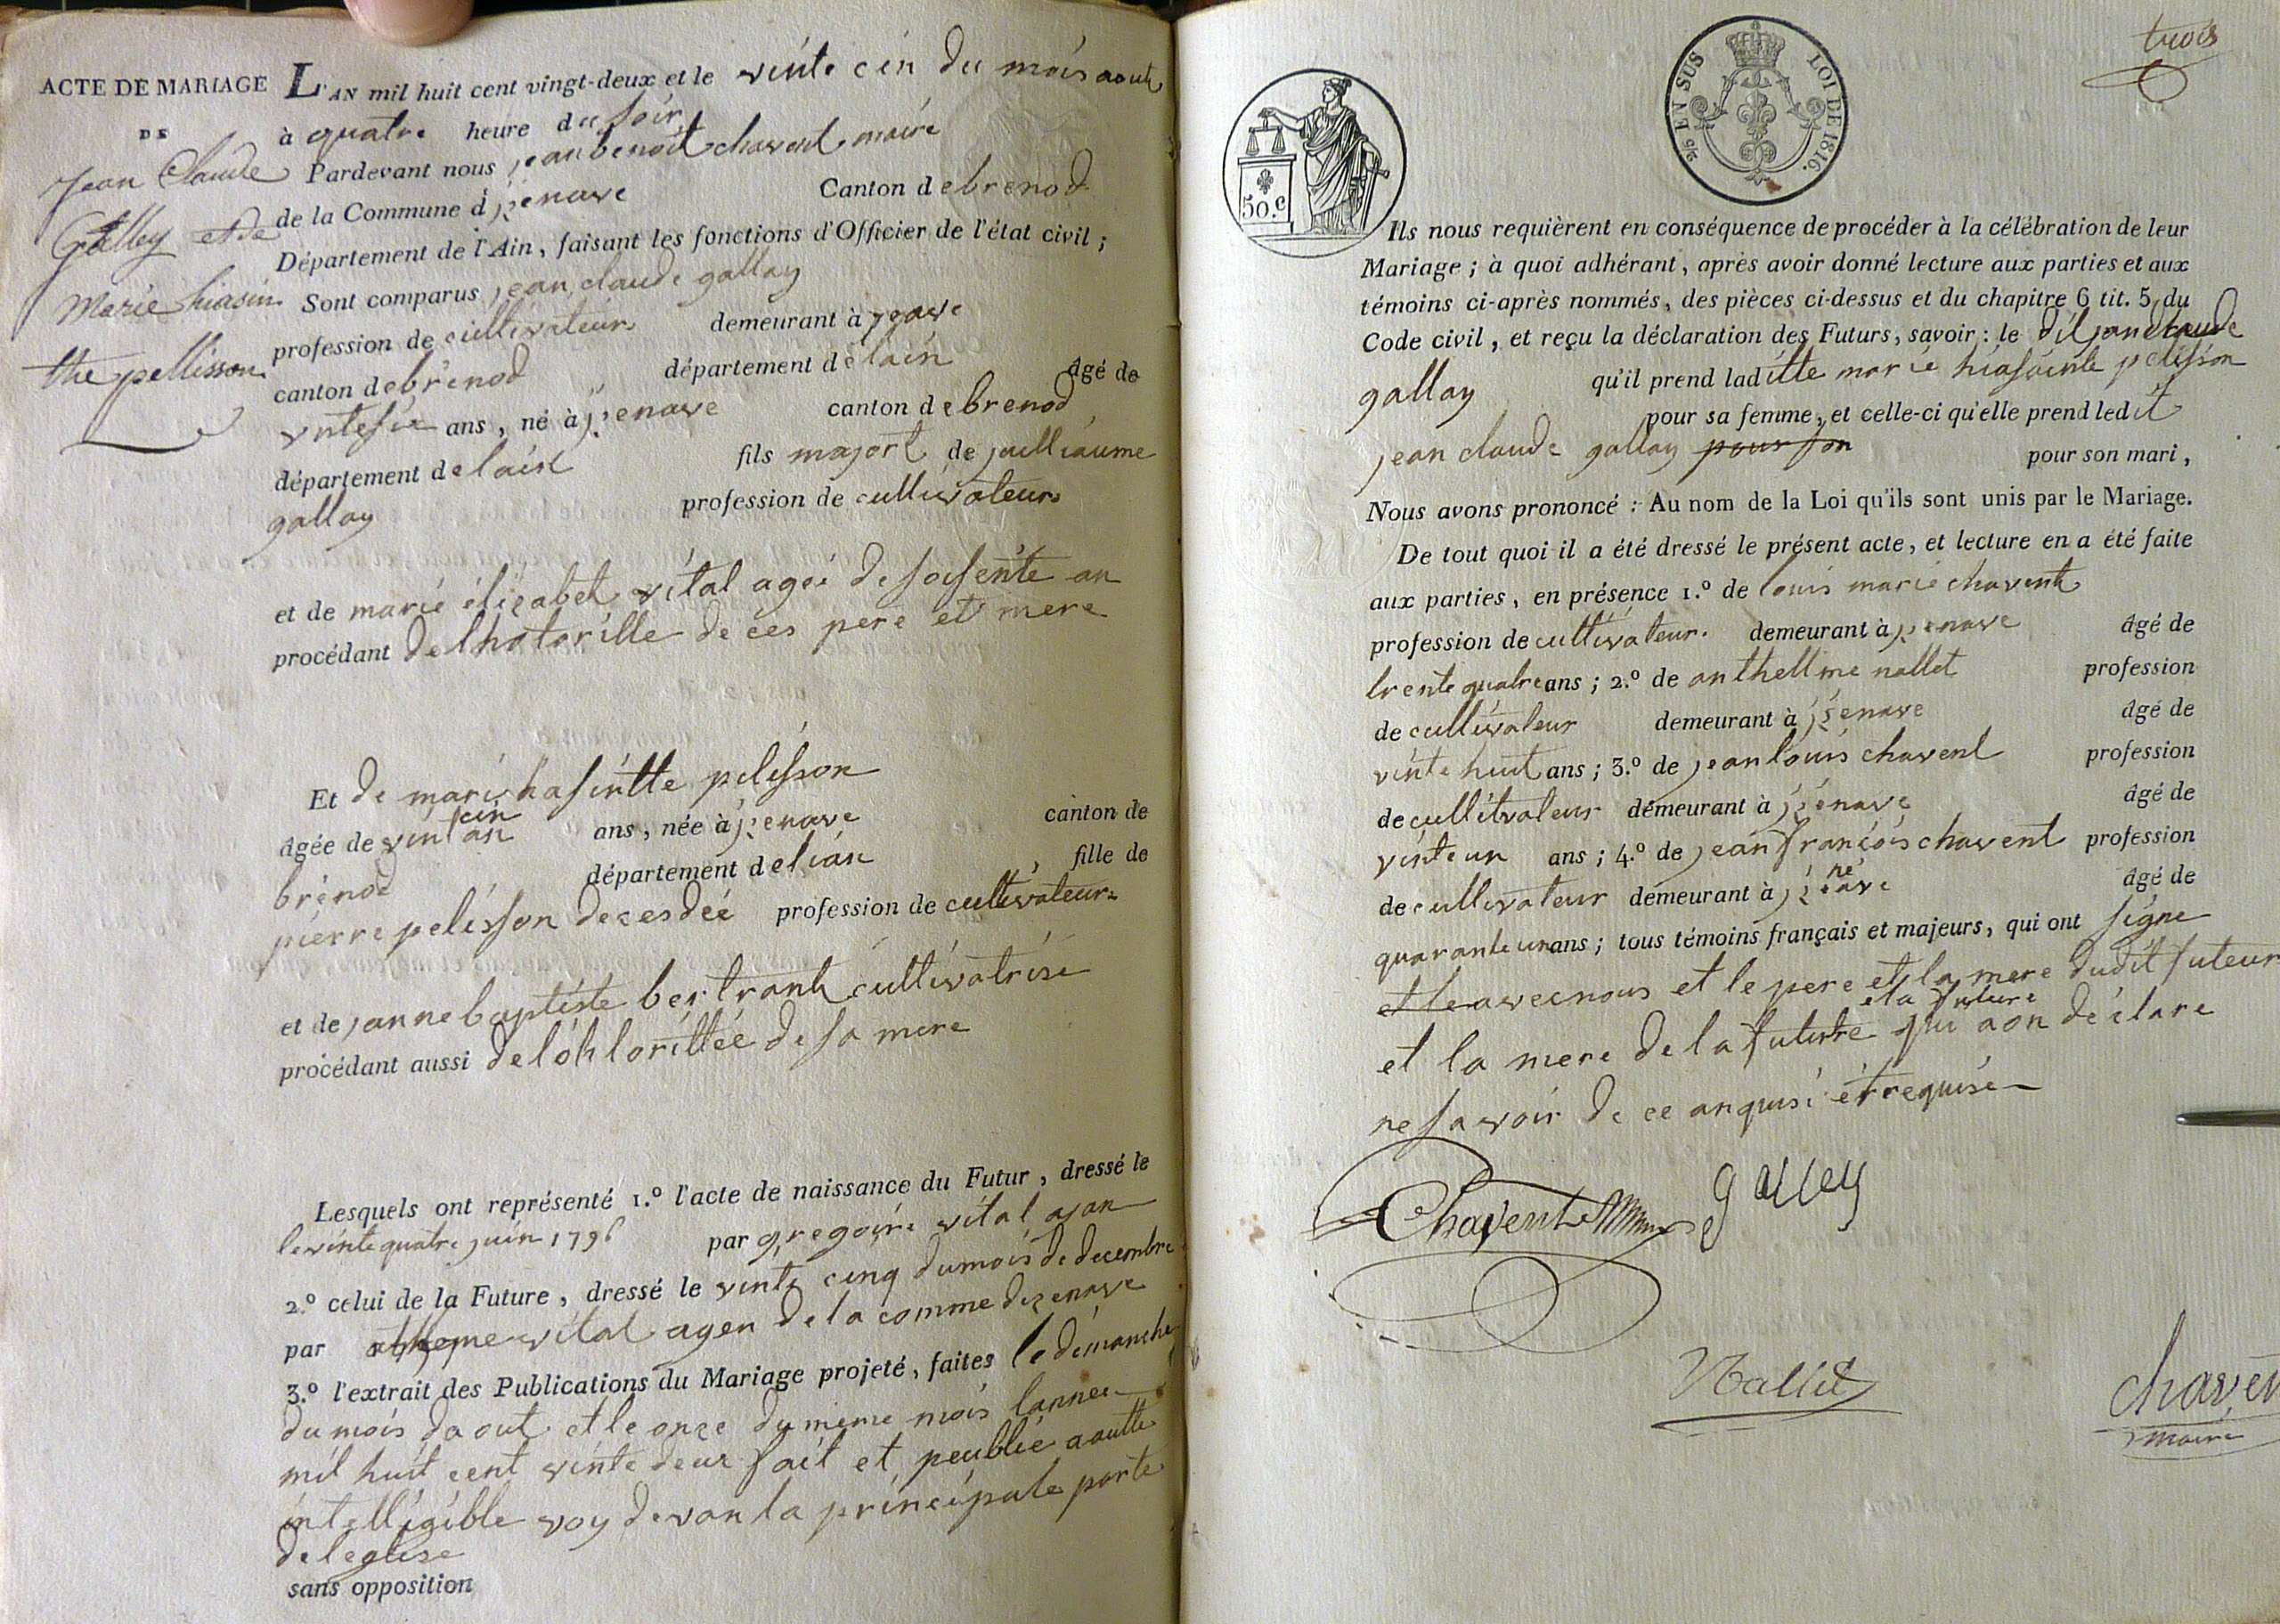 ACTE DE MARIAGE
DE
Jean Claude
Galley et de
Marie hiasin
the pellisson
L'AN mil huit cent vingt-deux et le vinte cin du mois aout
à quatre heure du soir
Pardevant nous jean benoit chavent maire
de la Commune d izenave Canton de brenod
Département de l'Ain, faisant les fonctions d'Officier de l'état civil;
Sont comparus jean claude gallay
profession de cultivateur demeurant à
canton de brenod département de lain âgé de
ans, né à izenave canton de brenod
département de lain fils majort de juilliaume
gallay profession de cultivateur
et de marie élizabet vital agée de soisente an
procédant de lhotorille de ces pere et mere
Et de marie hasintte pelisson
cin
âgée de vint an ans, née à izenave canton de
brenod département de lian fille de
pierre pelisson decesdée profession de cultivateur
et de janne baptiste bertrant cultivatrise
procédant aussi de lohtorittée de sa mere
Lesquels ont représenté 1.º l'acte de naissance du Futur, dressé le
le vinte quatre juin 1796 par gregoire vital ajan
2.º celui de la Future, dressé le vinte cinq du mois de decembre
par vital agen de la comme dizenave
3.º l'extrait des Publications du Mariage projeté, faites le démanche
du mois daout et le onze du meme mois lannee
mil huit cent vinte deux fait et peublié a outte
intelligible voy devan la principale porte
de leglise
sans opposition
trois
50.c
5/c EN SUS
LOI DE 1816.
Ils nous requièrent en conséquence de procéder à la célébration de leur
Mariage; à quoi adhérant, après avoir donné lecture aux parties et aux
témoins ci-après nommés, des pièces ci-dessus et du chapitre 6 tit. 5 du
Code civil, et reçu la déclaration des Futurs, savoir: le dit jean claude
gallay qu'il prend laditte marie hiasointe pelisson
pour sa femme, et celle-ci qu'elle prend ledit
jean claude gallay pour son pour son mari,
Nous avons prononcé: Au nom de la Loi qu'ils sont unis par le Mariage.
De tout quoi il a été dressé le présent acte, et lecture en a été faite
aux parties, en présence 1.º de louis marie chavent
profession de cultivateur. demeurant à izenave âgé de
trente quatre ans; 2.º de anthellme nallet profession
de cultivateur demeurant à izenave âgé de
vinte huit ans; 3.º de jean louis chavent profession
de cultitvateur demeurant à izenave âgé de
vinte un ans; 4.º de jean françois chavent profession
né
de cultivateur demeurant à izeave âgé de
quarante un ans; tous témoins français et majeurs, qui ont signe
et le avec nous et le pere et la mere dudit futeur
et la future
et la mere de la future qui aon déclare
ne savoir de ce anquis et requise
Chavent galley
Nallet
chaven
maire